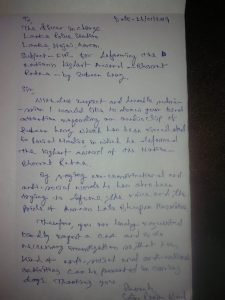 To, Date - 25/01/2019
The Officer in charge
Lanka Police Station
Lanka, Hojai, Assam.
Subject:- FIR for defaming the
nations highest Award Bharat
Ratna - by Zubeen Garg
Sir,
With due respect and humble
I would like to draw your kind
attention regarding an audio clip of
Zubeen Garg which has been
in Social Media in which he defamed
the highest award of the Nation -
Bharat Ratna.
By saying un-constitutional and
anti-social words he has also been
trying to defame the and the
of Late Bhupen Hazarika
Therefore, you are kindly requested
to kindly register a case and do
necessary investigation so that this
kind of anti-social and anti-national
activities can be prevented in coming
days. Thanking you